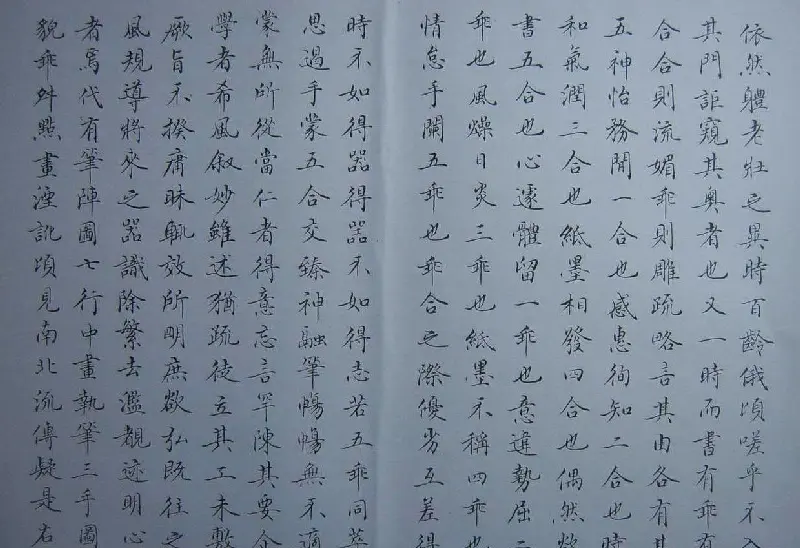 依然體老壯之異時百齡俄頃嗟乎不入
其門詎窺其奧者也又一時而書有乖有
合合則流媚乖則雕疏略言其由各有其
五神怡務閒一合也感惠徇知二合也時
和氣潤三合也紙墨相發四合也偶然欲
書五合也心遽體留一乖也意違勢屈二
乖也風燥日炎三乖也紙墨不稱四乖也
情怠手闌五乖也乖合之際優劣互差得
時不如得器得器不如得志若五乖同萃
思遏手蒙五合交臻神融筆暢暢無不適
蒙無所從當仁者得意忘言罕陳其要企
學者希風敘妙雖述猶疏徒立其工未敷
厥旨不揆庸昧輒效所明庶欲弘既往之
風規導將來之器識除繁去濫覩迹明心
者焉代有筆陣圖七行中畫執筆三手圖
貌乖舛點畫湮訛頃見南北流傳疑是右